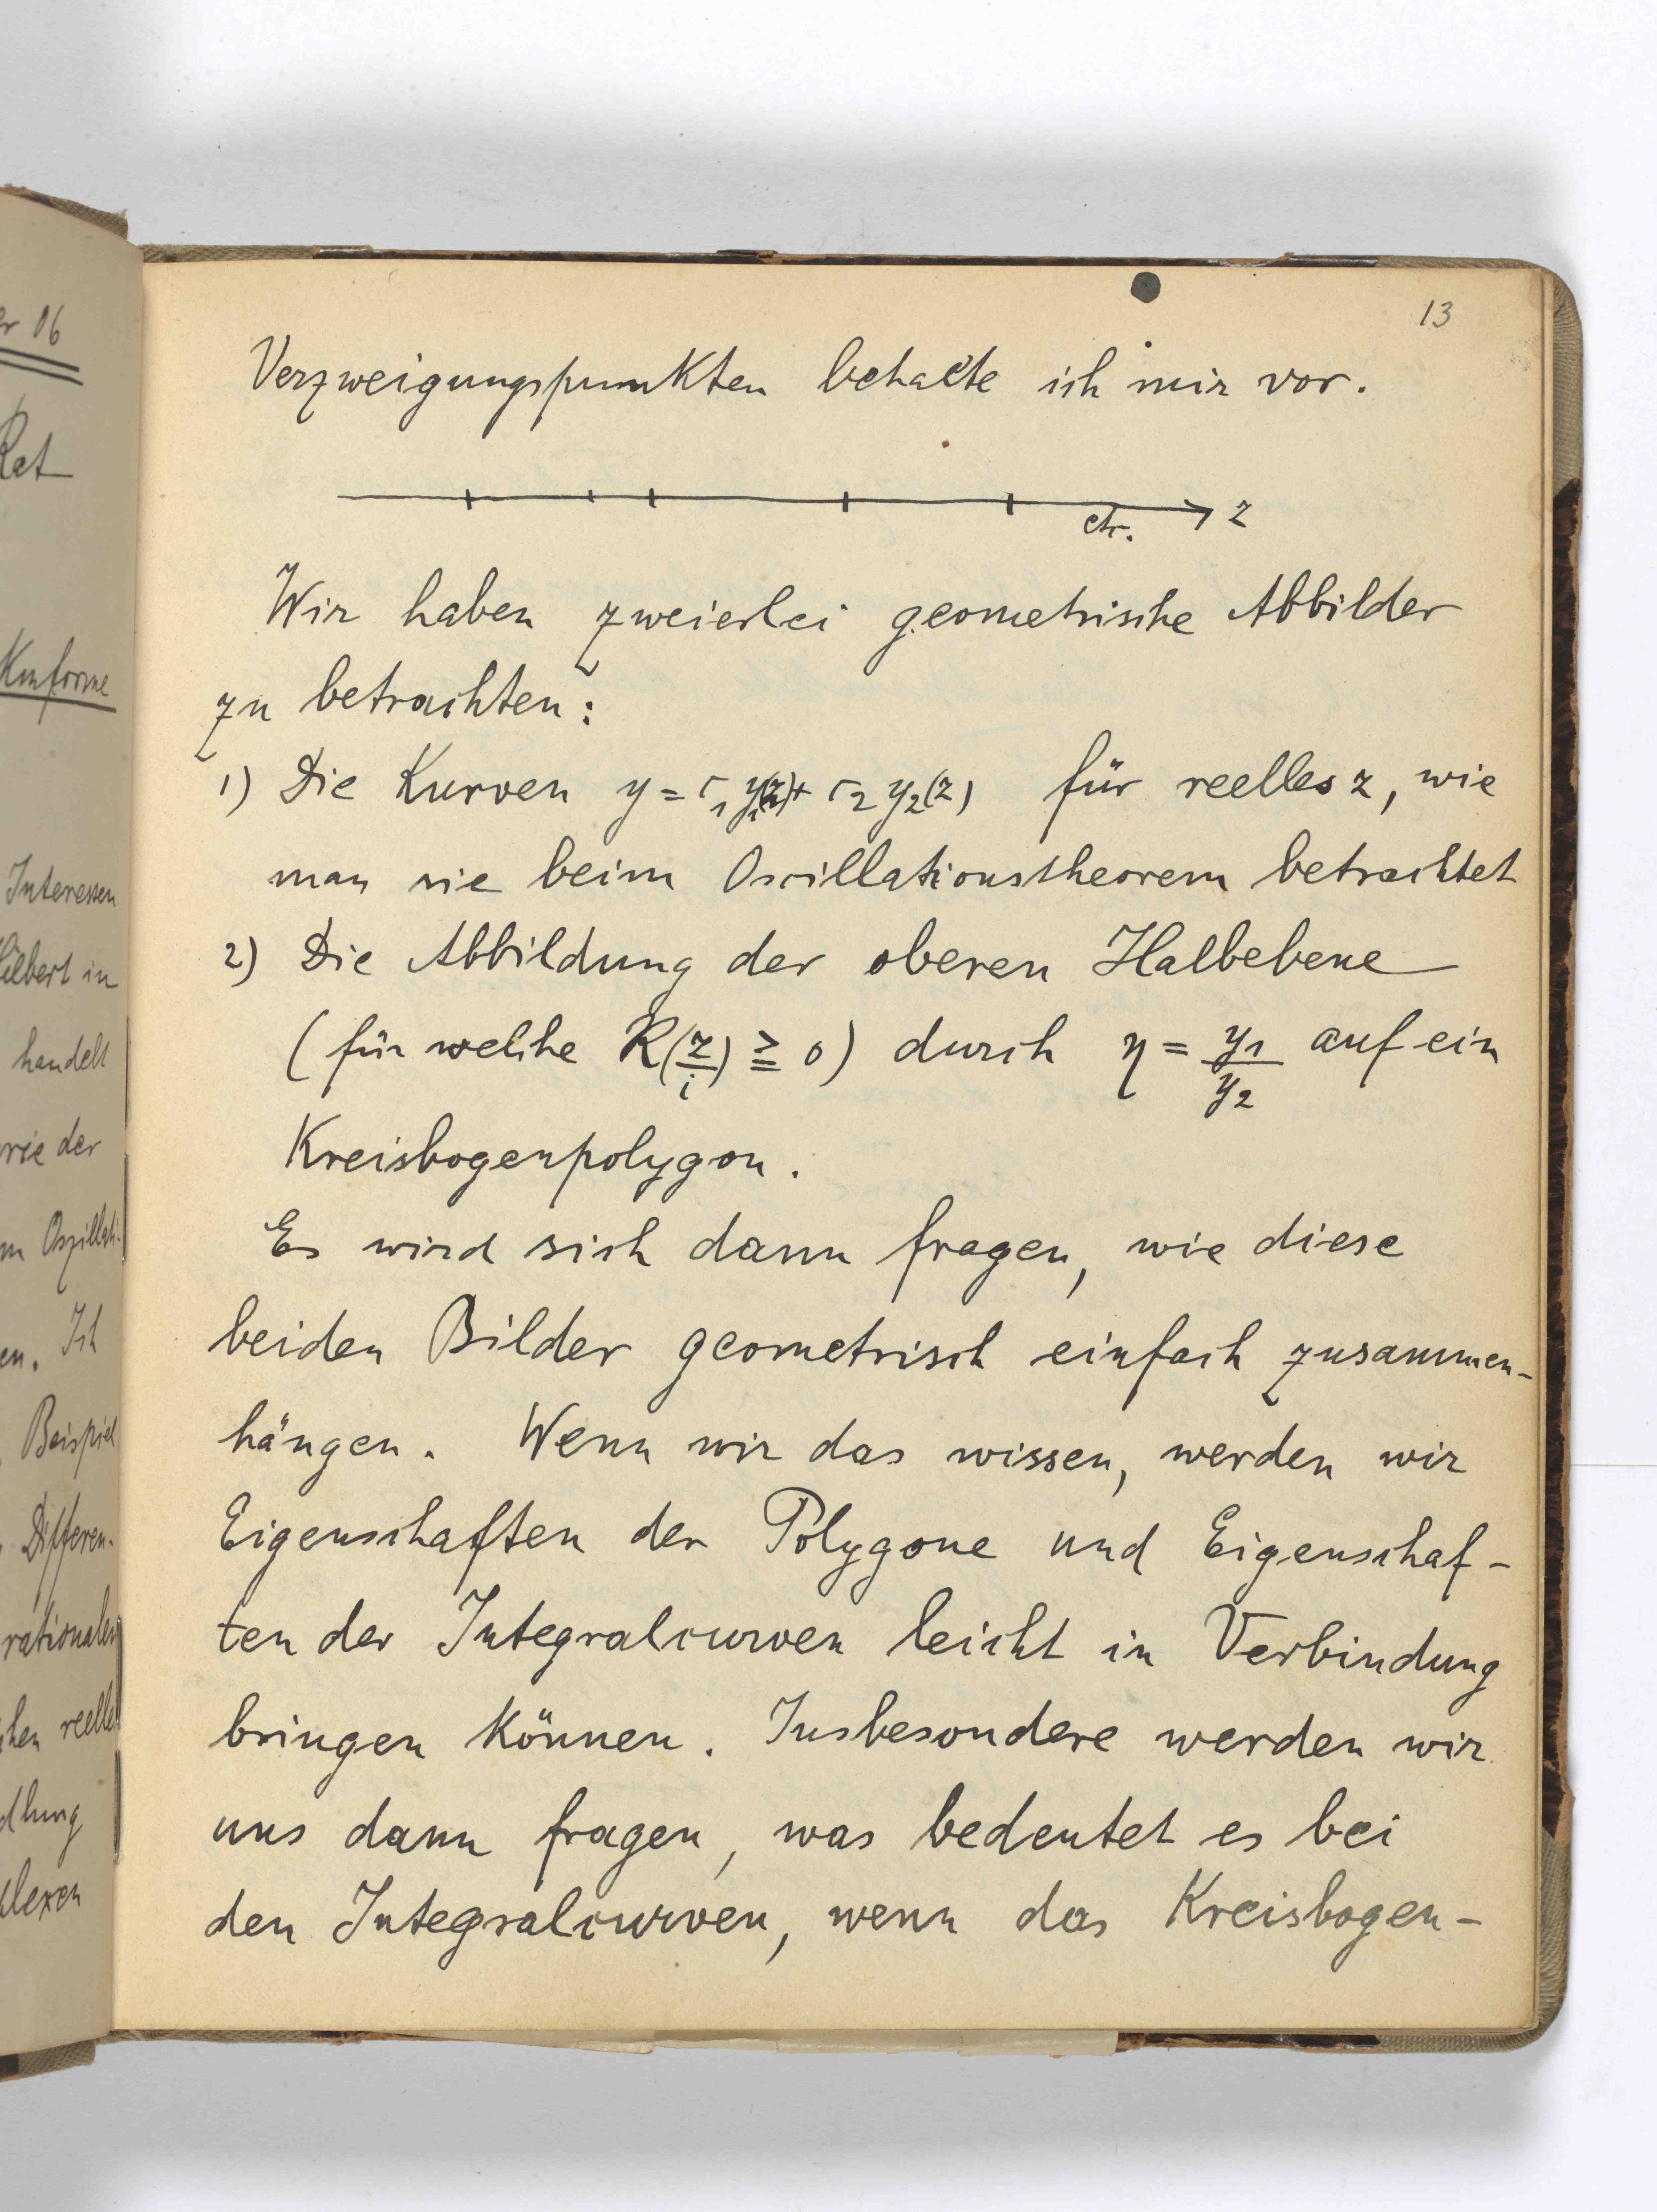 er 06
Rat
Konforme
Interessen
Hilbert in
handelt
orie der
m Oszillati-
en. Ich
Beispiel
Differen-
rationalen
chen reellen
dlung
plexen
13
Verzweigungspunkten behalte ich mir vor.
etc. z
Wir haben zweierlei geometrische Abbilder
zu betrachten:
1) Die Kurven y = c₁ y₁(z) + c₂ y₂(z) für reelles z, wie
man sie beim Oscillationstheorem betrachtet
2) Die Abbildung der oberen Halbebene
(für welche R(z/i) ≧ 0) durch η = y₁/y₂ auf ein
Kreisbogenpolygon.
Es wird sich dann fragen, wie diese
beiden Bilder geometrisch einfach zusammen-
hängen. Wenn wir das wissen, werden wir
Eigenschaften der Polygone und Eigenschaf-
ten der Integralcurven leicht in Verbindung
bringen können. Insbesondere werden wir
uns dann fragen, was bedeutet es bei
den Integralcurven, wenn das Kreisbogen-